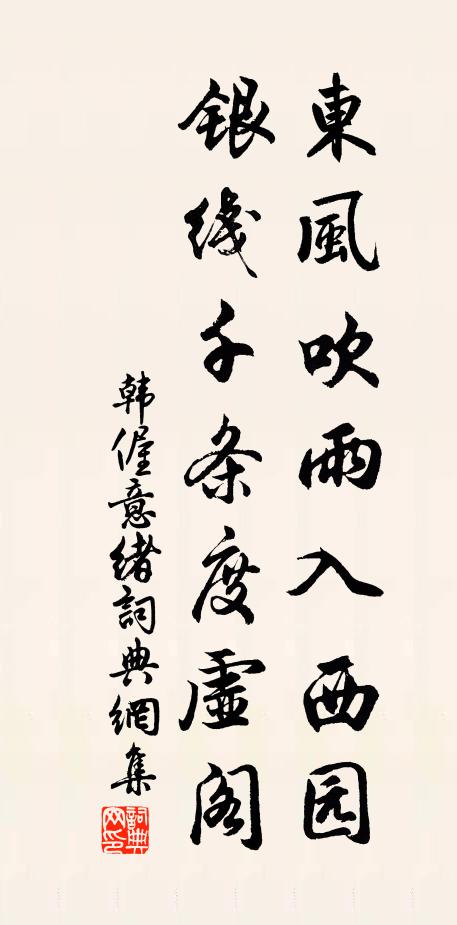 東風吹雨入西园
银线千条度虚阁
韩偓意绪詞典網集
詞典网印